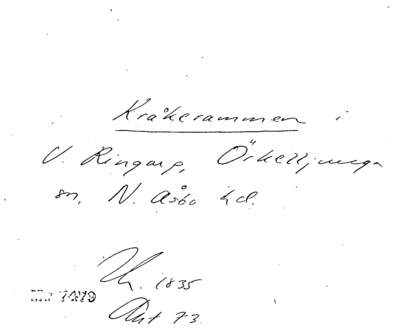 Kråkerammen i
V. Ringarp, Örkelljunga
sn, N. Åsbo hd.
1835
7479
Ant 73.